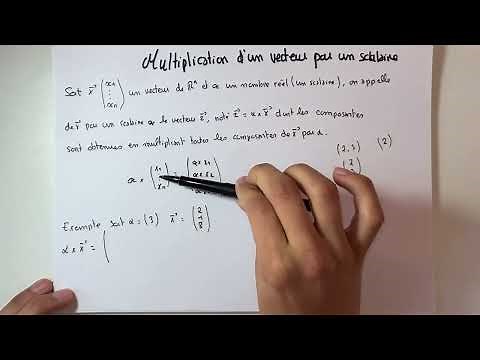 Multiplication d'un vecteur par un scalaire
Soit x⃗ (x₁ ⋮ xₙ) un vecteur de ℝⁿ et α un nombre réel (un scalaire), on appelle
de x⃗ par un scalaire α le vecteur z⃗, noté z⃗ = α × x⃗ dont les composantes
sont obtenues en multipliant toutes les composantes de x⃗ par α.
(2, 3) (2)
α × (x₁ xₙ) = (α × x₁ α × x₂
Exemple soit α = (3) x⃗ = (2 8)
α × x⃗ = (